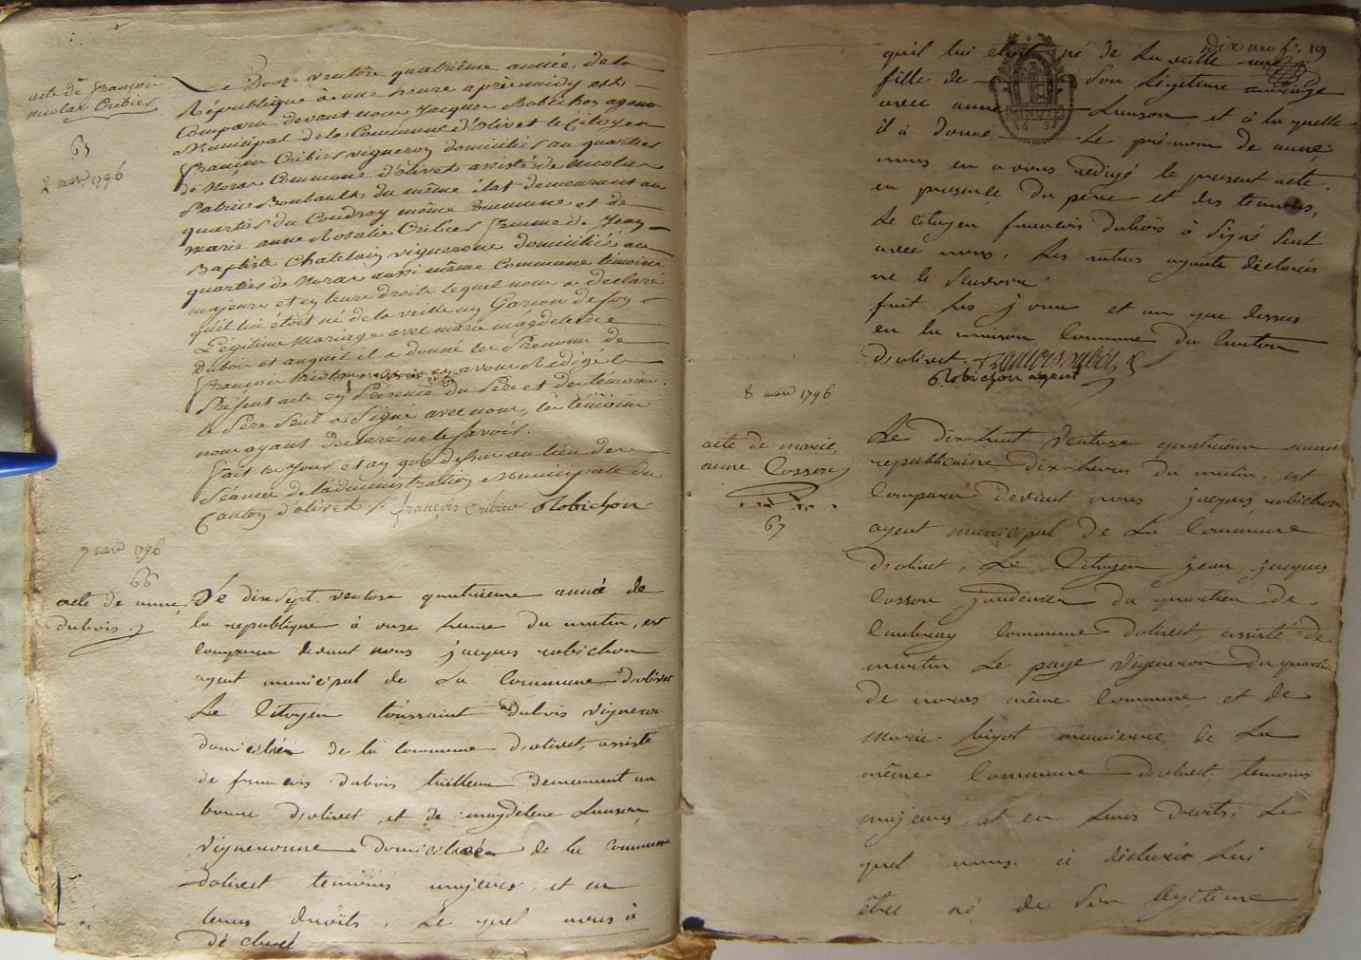 acte de françois
nicolas Cribier
65
2 mars 1796
Le Douze ventose quatrième année de la
République à une heure après midy est
Comparu devant nous Jacques Robichon agent
Municipal de la Commune d'olivet le Citoyen
François Cribier vigneron domiciliés au quartier
de Noras Commune d'olivet assisté de Nicolas
Patrice du même état demeurant au
quartier du Coudray même Commune et de
marie anne Rosalie Cribier femme de Jean
Baptiste Chatelain vigneronne domiciliée au
quartier de Noras aussi même Commune témoins
majeurs et en leurs droits lequel nous a déclaré
qu'il lui étoit né de la veille un Garçon de son
Légitime Mariage avec marie magdeleine
Dubois et auquel il a donné les Prénoms de
François nicolas en avons Rédigé le
Présent acte en Présence du Père et des témoins.
le Père Seul a Signé avec nous, les témoins
nous ayant déclaré ne le Savoir.
Fait les jour et an que dessus au lieu des
Séances de l'administration Municipale du
Canton d'olivet. françois Cribier Robichon
7 mars 1796
66
acte de anne
dubois.
Le dix Sept. ventose quatrieme année de
la republique à onze heure du matin, est
comparu devant nous jacques robichon
agent municipal de La Commune d'olivet
Le Citoyen toussaint dubois vigneron
domicilier de la commune d'olivet, assisté
de francois dubois tailleur demeurant au
bourg d'olivet, et de magdelene Lanson
vigneronne domiciliée de la commune
dolivet temoins majeurs, et en
leurs droits, Le quel nous à
déclaré
dix neuf. 19
quil lui etoit né de La veille une
fille de Son Légitime mariage
avec anne Lanson et à la quelle
il à donné Le pré-nom de anne,
nous en avons redigé le present acte.
en presence du père et des temoins,
Le citoyen francois dubois à Signé Seul
avec nous, Les autres ayants déclarés
ne le Scavoir
fait Les jour et an que dessus
en la maison Commune du Canton
d'olivet. francois dubois
Robichon agent
8 mars 1796
acte de marie
anne Cosson
67
Le dix-huit Ventose quatrieme année
republicaine dix-heures du matin, est
Comparu devant nous jacques robichon
agent municipal de La Commune
d'olivet, Le Citoyen jean jacques
Cosson jardinier du quartier de
Caubray Commune dolivet, assisté de
martin Le page vigneron du quartier
de noras même Commune et de
marie bigot meuniere de La
même Commune dolivet temoins
majeurs, et en leurs droits, Le
quel nous a déclaré Lui
être né de Son légitime